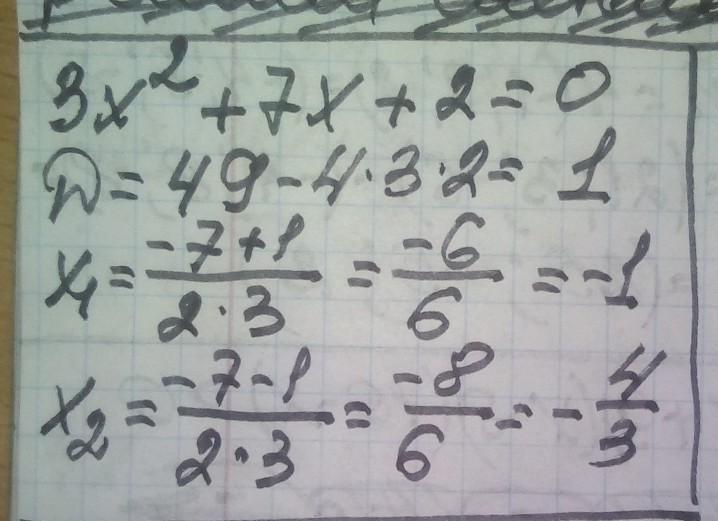 3x² + 7x + 2 = 0
D = 49 - 4·3·2 = 1
x₁ = \frac{-7+1}{2·3} = \frac{-6}{6} = -1
x₂ = \frac{-7-1}{2·3} = \frac{-8}{6} = -\frac{4}{3}